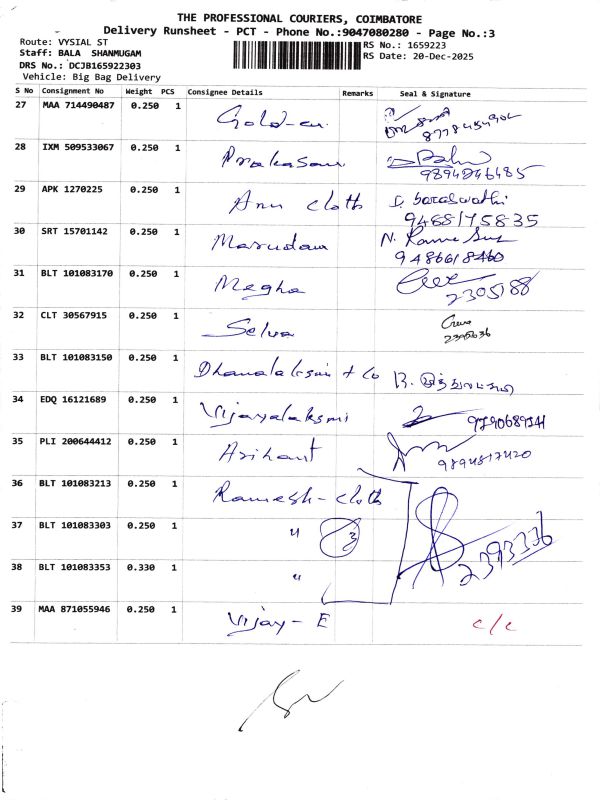 THE PROFESSIONAL COURIERS, COIMBATORE
Delivery Runsheet - PCT - Phone No.:9047080280 - Page No.:3
Route: VYSIAL ST
Staff: BALA SHANMUGAM
DRS No.: DCJB165922303
Vehicle: Big Bag Delivery
RS No.: 1659223
RS Date: 20-Dec-2025
S No Consignment No Weight PCS Consignee Details Remarks Seal & Signature
27 MAA 714490487 0.250 1 Gold-en
28 IXM 509533067 0.250 1 Prakasam
9894246485
29 APK 1270225 0.250 1 Anu cloth S. Saraswathi
9488175835
30 SRT 15701142 0.250 1 Marudam N.
9486618460
31 BLT 101083170 0.250 1 Megha
2305188
32 CLT 30567915 0.250 1 Selva
33 BLT 101083150 0.250 1 Dhanalaksmi + Co B.
34 EDQ 16121689 0.250 1 Vijayalaksmi
35 PLI 200644412 0.250 1 Arihant
9894817420
36 BLT 101083213 0.250 1 Ramesh-cloth
37 BLT 101083303 0.250 1 " 3
2393336
38 BLT 101083353 0.330 1 "
39 MAA 871055946 0.250 1 Vijay-E c/c